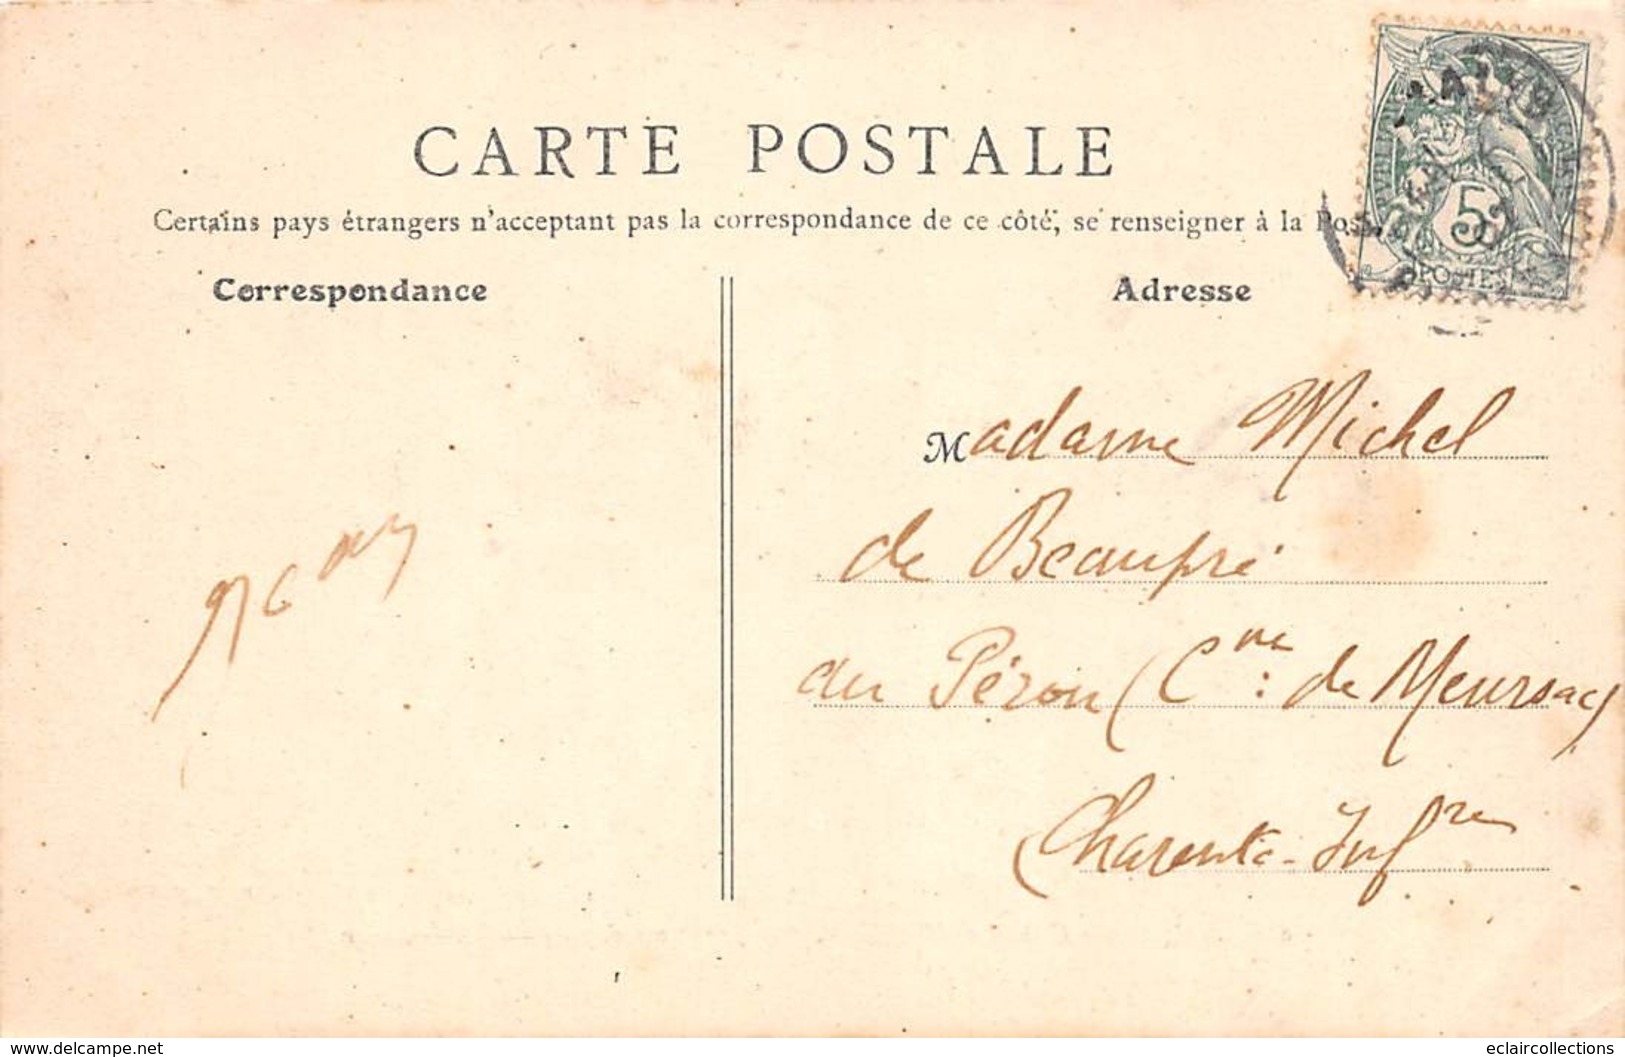 CARTE POSTALE
Certains pays étrangers n'acceptent pas la correspondance de ce côté, se renseigner à la Pos
Correspondance
Adresse
5
POSTES
Madame Michel
de Beaupré
au Péron (Cne: de Meursac)
Charente-Infre
delcampe.net
eclaircollections